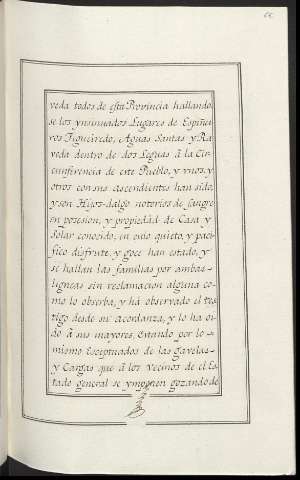 veda todos de esta Provincia hallando
se los ynsinuados Lugares de Espiñei
ros Figueiredo, Aguas Santas y Ra
veda dentro de dos Leguas â la Cir=
cunferencia de este Pueblo, y vnos, y
otros con sus ascendientes han sido,
y son Hijos-dalgo notorios de sangre
en posesion, y propiedad de Casa y
Solar conocido, en cuio quieto, y paci
fico disfrute, y goce han estado, y
se hallan las familias por ambas
ligneas sin reclamacion alguna co
mo lo obserba, y há observado el tes
tigo desde su acordanza, y lo ha oi
do â sus mayores, Estando por lo
mismo Esceptuados de las gavelas
y Cargas que â los Vecinos de el Es
tado general se ymponen gozando de